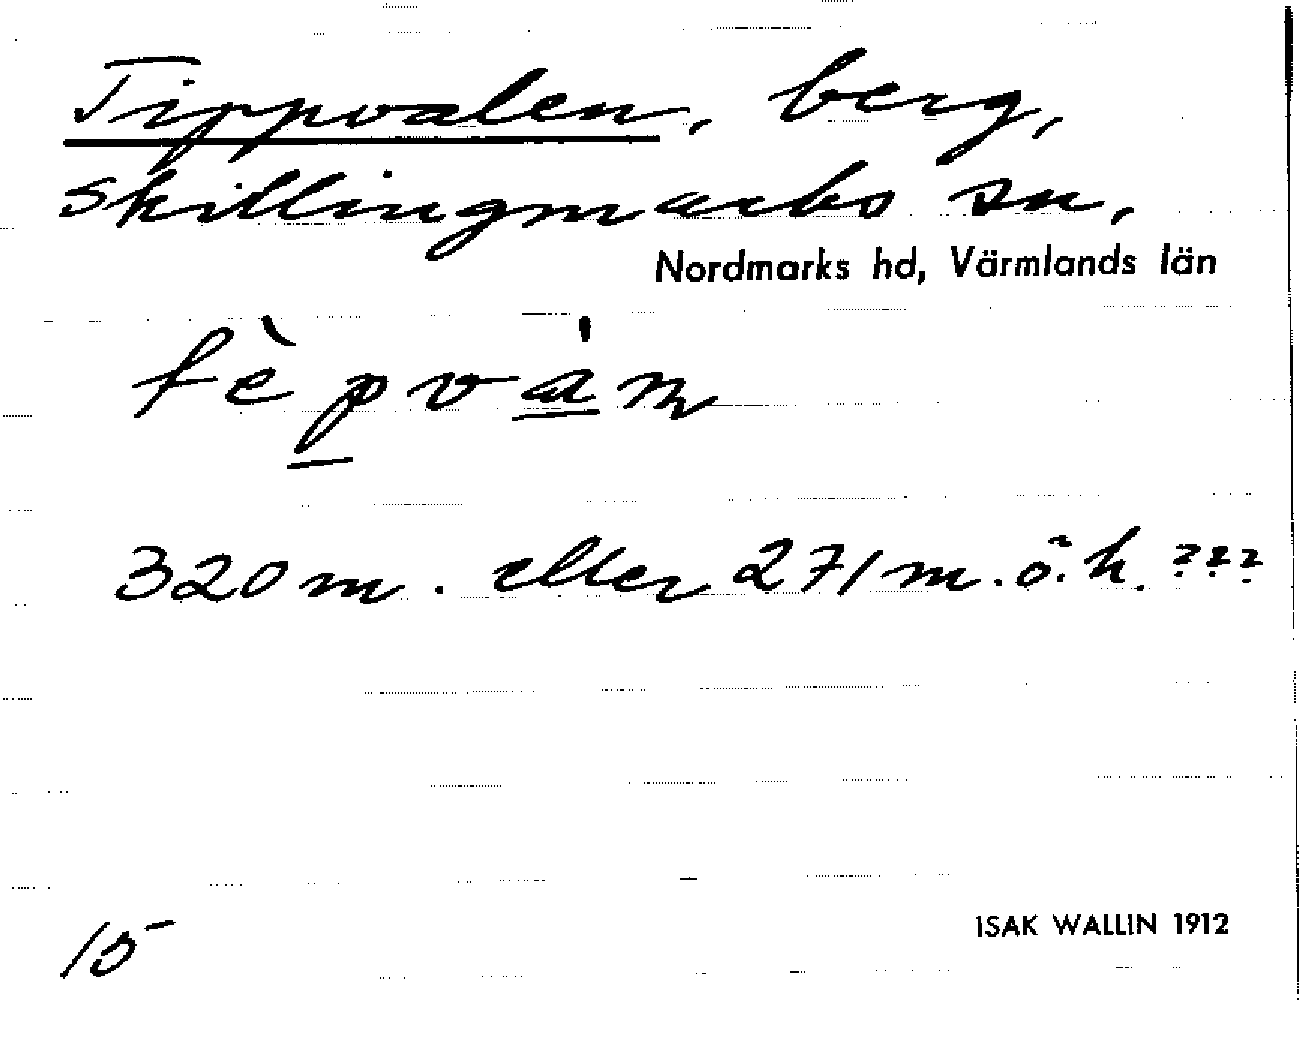 Tippvalen, berg,
Skillingmarks sn,
Nordmarks hd, Värmlands län
tèpván
320 m. eller 271 m.ö.h. ???
15
ISAK WALLIN 1912